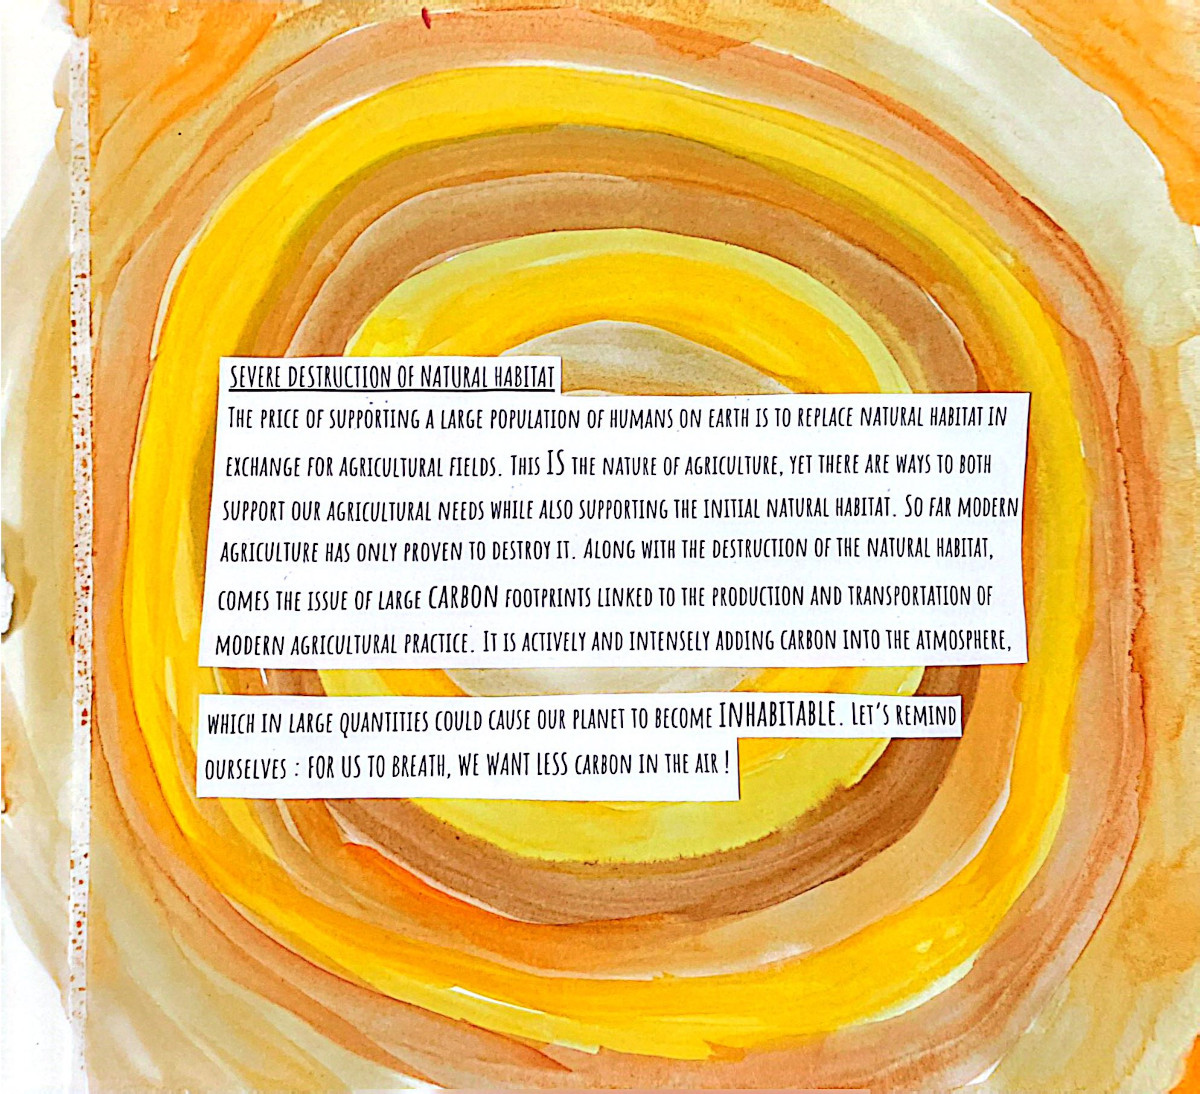 SEVERE DESTRUCTION OF NATURAL HABITAT
THE PRICE OF SUPPORTING A LARGE POPULATION OF HUMANS ON EARTH IS TO REPLACE NATURAL HABITAT IN
EXCHANGE FOR AGRICULTURAL FIELDS. THIS IS THE NATURE OF AGRICULTURE, YET THERE ARE WAYS TO BOTH
SUPPORT OUR AGRICULTURAL NEEDS WHILE ALSO SUPPORTING THE INITIAL NATURAL HABITAT. SO FAR MODERN
AGRICULTURE HAS ONLY PROVEN TO DESTROY IT. ALONG WITH THE DESTRUCTION OF THE NATURAL HABITAT,
COMES THE ISSUE OF LARGE CARBON FOOTPRINTS LINKED TO THE PRODUCTION AND TRANSPORTATION OF
MODERN AGRICULTURAL PRACTICE. IT IS ACTIVELY AND INTENSELY ADDING CARBON INTO THE ATMOSPHERE,
WHICH IN LARGE QUANTITIES COULD CAUSE OUR PLANET TO BECOME INHABITABLE. LET'S REMIND
OURSELVES : FOR US TO BREATH, WE WANT LESS CARBON IN THE AIR !